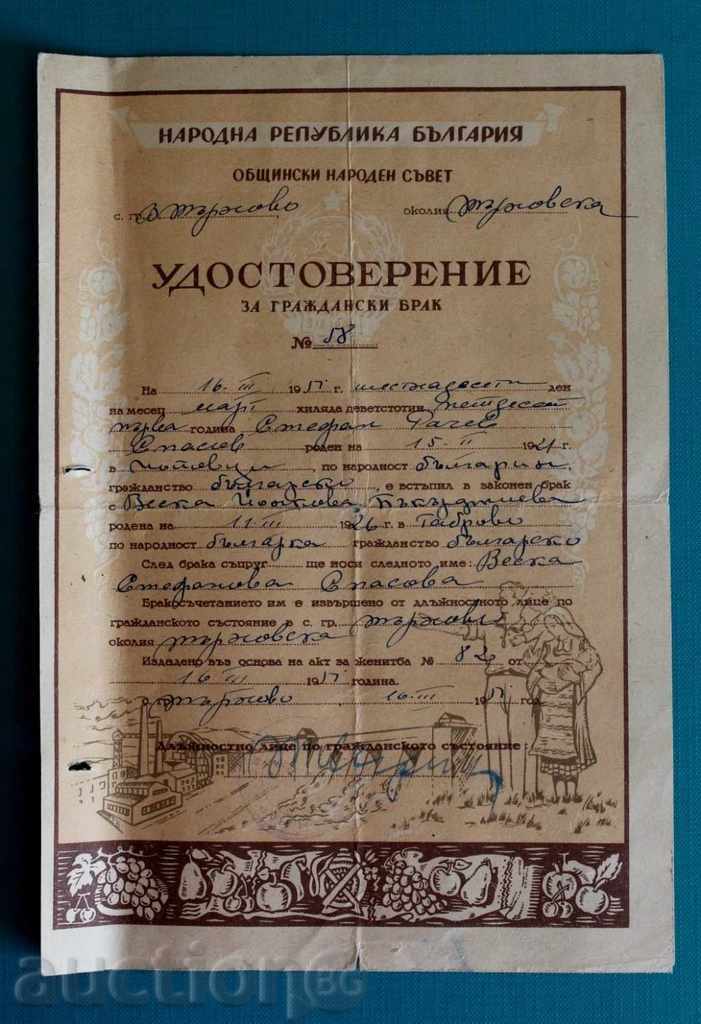 НАРОДНА РЕПУБЛИКА БЪЛГАРИЯ
ОБЩИНСКИ НАРОДЕН СЪВЕТ
с. г. В. Търново околия Търновска
УДОСТОВЕРЕНИЕ
ЗА ГРАЖДАНСКИ БРАК
№ 58
На 16. III 1951 г. шестнадесети ден
на месец март хиляда деветстотин петдесет
първа година Стефан Рачев
Спасов роден на 15. II 1921 г.
в , по народност българин,
гражданство българско, е встъпил в законен брак
с Веска Пъкърджиева
родена на 11. III 1926 г. в Габрово
по народност българка гражданство българско
След брака съпруг ще носи следното име: Веска
Стефанова Спасова
Бракосъчетанието им е извършено от длъжностното лице по
гражданското състояние в с. гр. Търново
околия Търновска
Издадено въз основа на акт за женитба № 82 от
16 III 1951 година.
с. Търново, 16. III 1951 год.
Длъжностно лице по гражданското състояние:
auctionBG